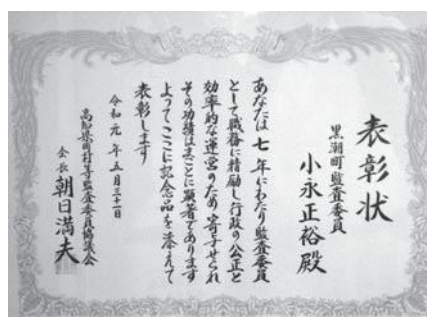 表彰状
黒潮町監査委員
小永正裕殿
あなたは七年にわたり監査委員
として職務に精励し行政の公正と
効率的な運営のため寄与せられ
その功績はまことに顕著であります
よってここに記念品を添えて
表彰します
令和元年五月三十一日
高知県町村等監査委員協議会
会長 朝日満夫